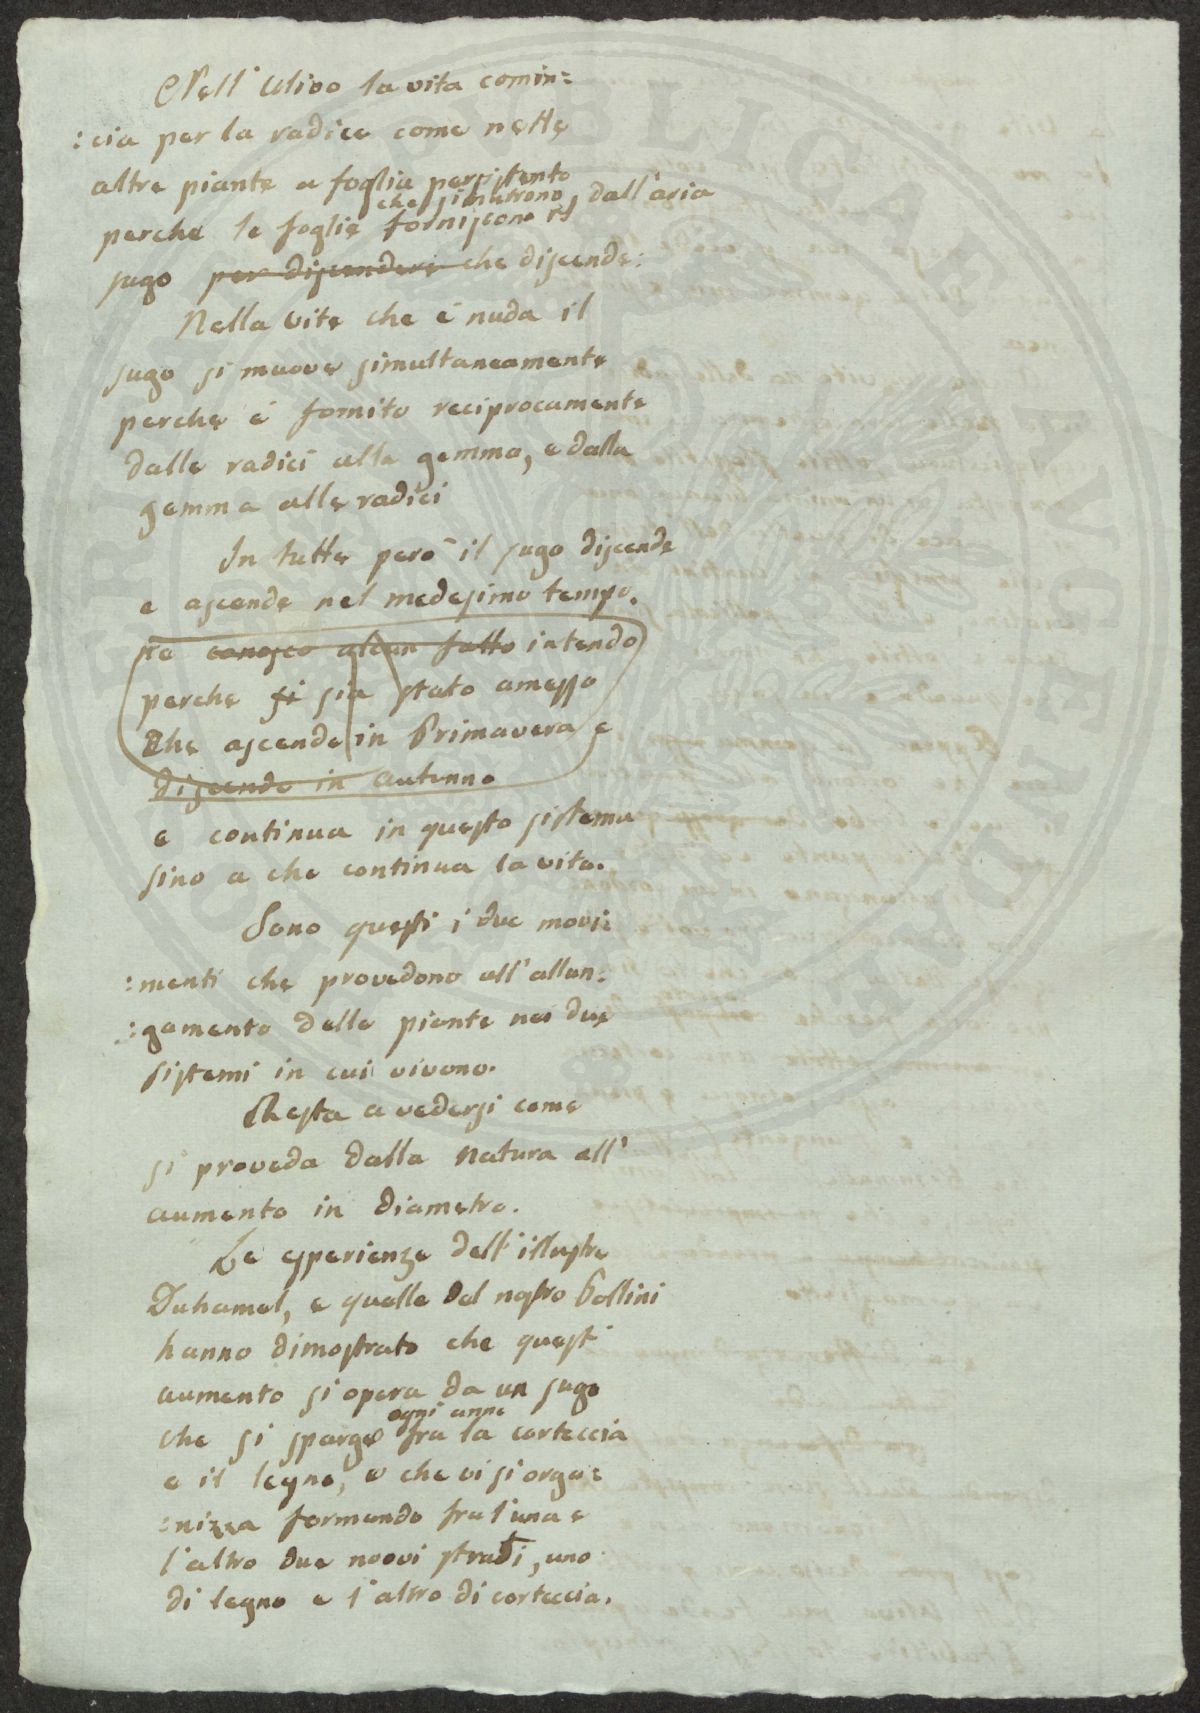 Nell'Ulivo la vita comin=
:cia per la radice come nelle
altre piante a foglia persistente
che si nutrono dall'aria
perche le foglie forniscono il
sugo per discendere che discende:
Nella vite che é nuda il
sugo si muove simultaneamente
perche é fornito reciprocamente
dalle radici alla gemma, e dalla
gemma alle radici
In tutte però il sugo discende
e ascende nel medesimo tempo.
ne conosco alcun fatto intendo
perche si sia stato amesso
Che ascende in Primavera e
discende in autunno
e continua in questo sistema
sino a che continua la vita.
Sono questi i due movi:
:menti che provedono all'allun:
:gamento delle piante nei due
sistemi in cui vivono.
Resta a vedersi come
si proveda dalla Natura all'
aumento in diametro.
Le esperienze dell'illustre
Duhamel, e quelle del nostro Pollini
hanno dimostrato che questi
aumento si opera da un sugo
ogni anno
che si sparge fra la corteccia
e il legno, e che vi si orga=
:nizza formando fra l'una e
l'altro due nuovi strati, uno
di legno e l'altro di corteccia.